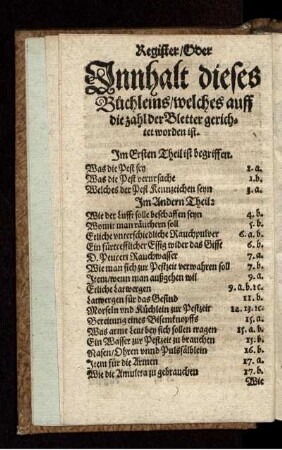 Register/Oder
Innhalt dieses
Büchleins/welches auff
die zahl der Bletter gerich-
tet worden ist.
Im Ersten Theil ist begriffen.
Was die Pest sey 1.a.
Was die Pest verursache 1.b.
Welches der Pest Kennzeichen seyn 3.a.
Im Andern Theil:
Wie der Lufft solle beschaffen seyn 4.b.
Womit man räuchern soll 5.b.
Etliche vnterschiedliche Rauchpulver 6.a.b.
Ein fürtrefflicher Essig wider das Gifft 6.b.
D. Peuceri Rauchwasser 7.a.
Wie man sich zur Pestzeit verwahren soll 7.b.
Item/wenn man außgehen will 9.a.
Etliche Latwergen 9.a.b.ıc.
Latwergen für das Gesind 11.b.
Morseln vnd Küchlein zur Pestzeit 12.13.ıc.
Bereitung eines Bisemknopffs 15.a.
Was arme Leut bey sich sollen tragen 15.a.b.
Ein Wasser zur Pestzeit zu brauchen 15.b.
Nasen/Ohren vnnd Pulssälblein 16.b.
Item für die Armen 17.a.
Wie die Amuleta zu gebrauchen 17.b.
Wie